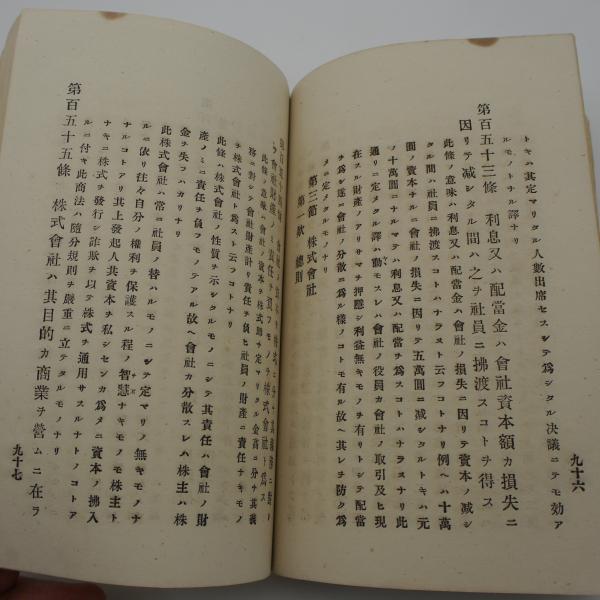 トキハ其定マリタル人數出席セスシテ爲シタル決議ニテモ効ア
ルモノトナル譯ナリ
第百五十三條 利息又ハ配當金ハ會社資本額カ損失ニ
因リテ減シタル間ハ之ヲ社員ニ拂渡スコトヲ得ス
此條ノ意味ハ利息又ハ配當金ハ會社ノ損失ニ因リテ資本ノ減シ
タル間ハ社員ニ拂渡スコトハナラヌト云フコトナリ例ヘハ十萬
圓ノ資本金カ會社ノ損失ニ因リテ五萬圓ニ減シタルトキハ元
ノ十萬圓ニナルマテハ利息又ハ配當ヲ爲スコトハナラヌナリ此
通リニ定メタル譯ハ動モスレハ會社ノ役員カ會社ノ取引及ヒ現
在スル財產ノアリサマヲ押隱シ利益無キモノヲ有リトシテ配當
ヲ爲シ遂ニ會社ノ分散ニ爲ル樣ノコトモ有ル故ヘ其レヲ防ク爲
メニ定メタルモノナリ
第三節 株式會社
第一欵 總則
九十六
ケ會社財產ノミ責任ヲ負フモノヲ株式會社ト爲ス
此條ノ意味ハ會社ノ資本ヲ株式即チ定マリタル金高ニ分チ其義
務ニ對シテ會社財產計リ責任ヲ負ヒ社員ノ財產ニ責任ナキモノ
ヲ株式會社ト爲スト云フコトナリ
此條ハ株式會社ノ性質ヲ示シタルモノニシテ其責任ハ會社ノ財
產ノミニ責任ヲ負フモノテアル故ヘ會社カ分散スレハ株主ハ株
金ヲ失フハカリナリ
此株式會社ハ常ニ社員ノ替ハルモノニシテ定マリノ無キモノナ
ルニ依リ往々自分ノ權利ヲ保護スル程ノ智慧ナキモノモ株主ト
ナルコトアリ其上發起人其資本ヲ私シセンカ爲メニ資本ノ拂入
ナキニ株式ヲ發行シ詐欺ヲ以テ株式ヲ通用サスルナトノコトア
ルニ付キ此商法ハ隨分規則ヲ嚴重ニ立テタルモノナリ
第百五十五條 株式會社ハ其目的カ商業ヲ營ムニ在ラ
九十七